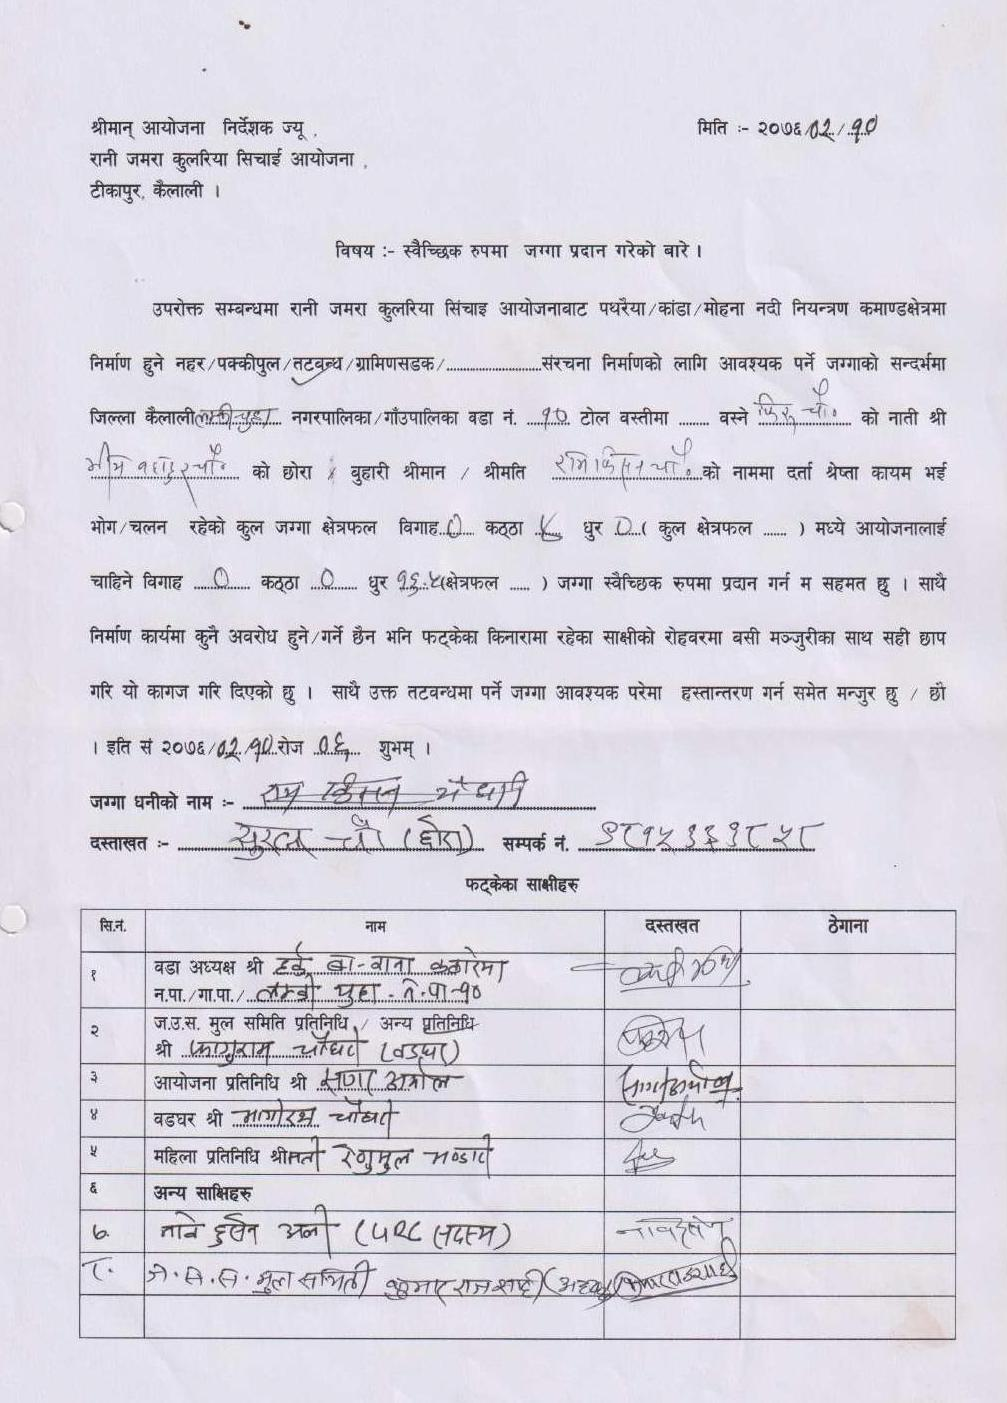 श्रीमान् आयोजना निर्देशक ज्यू ,
मिति :- २०७६/०२/१०
रानी जमरा कुलरिया सिचाई आयोजना ,
टीकापुर, कैलाली ।
विषय :- स्वैच्छिक रुपमा जग्गा प्रदान गरेको बारे ।
उपरोक्त सम्बन्धमा रानी जमरा कुलरिया सिंचाइ आयोजनाबाट पथरैया/कांडा/मोहना नदी नियन्त्रण कमाण्डक्षेत्रमा
निर्माण हुने नहर/पक्कीपुल/तटबन्ध/ग्रामिणसडक/........................संरचना निर्माणको लागि आवश्यक पर्ने जग्गाको सन्दर्भमा
जिल्ला कैलाली लम्कीचुहा नगरपालिका/गाँउपालिका वडा नं. १० टोल वस्तीमा ........ वस्ने चौ. को नाती श्री
भीम बहादुर चौ. को छोरा / बुहारी श्रीमान / श्रीमति राम किसन चौ. को नाममा दर्ता श्रेष्ता कायम भई
भोग/चलन रहेको कुल जग्गा क्षेत्रफल विगाह ० कठ्ठा ५ धुर ० ( कुल क्षेत्रफल ...... ) मध्ये आयोजनालाई
चाहिने विगाह ० कठ्ठा ० धुर १६.५ (क्षेत्रफल ..... ) जग्गा स्वैच्छिक रुपमा प्रदान गर्न म सहमत छु । साथै
निर्माण कार्यमा कुनै अवरोध हुने/गर्ने छैन भनि फट्केका किनारामा रहेका साक्षीको रोहवरमा बसी मञ्जुरीका साथ सही छाप
गरि यो कागज गरि दिएको छु । साथै उक्त तटवन्धमा पर्ने जग्गा आवश्यक परेमा हस्तान्तरण गर्न समेत मन्जुर छु / छौ
। इति सं २०७६/०२/१० रोज ०६ शुभम् ।
जग्गा धनीको नाम :- राम किसन चौधरी
दस्ताखत :- चौ (छोरा) सम्पर्क नं.
फट्केका साक्षीहरु
सि.नं. नाम दस्तखत ठेगाना
१ वडा अध्यक्ष श्री
न.पा./गा.पा./ लम्की चुहा न.पा-१०
२ ज.उ.स. मुल समिति प्रतिनिधि / अन्य प्रतिनिधि
श्री फागुराम चौधरी (वडघर)
३ आयोजना प्रतिनिधि श्री
४ वडघर श्री चौधरी
५ महिला प्रतिनिधि श्रीमती
६ अन्य साक्षिहरु
७. अली सदस्य)
८. ज.उ.स. मुल समिती कुमार राज शाही